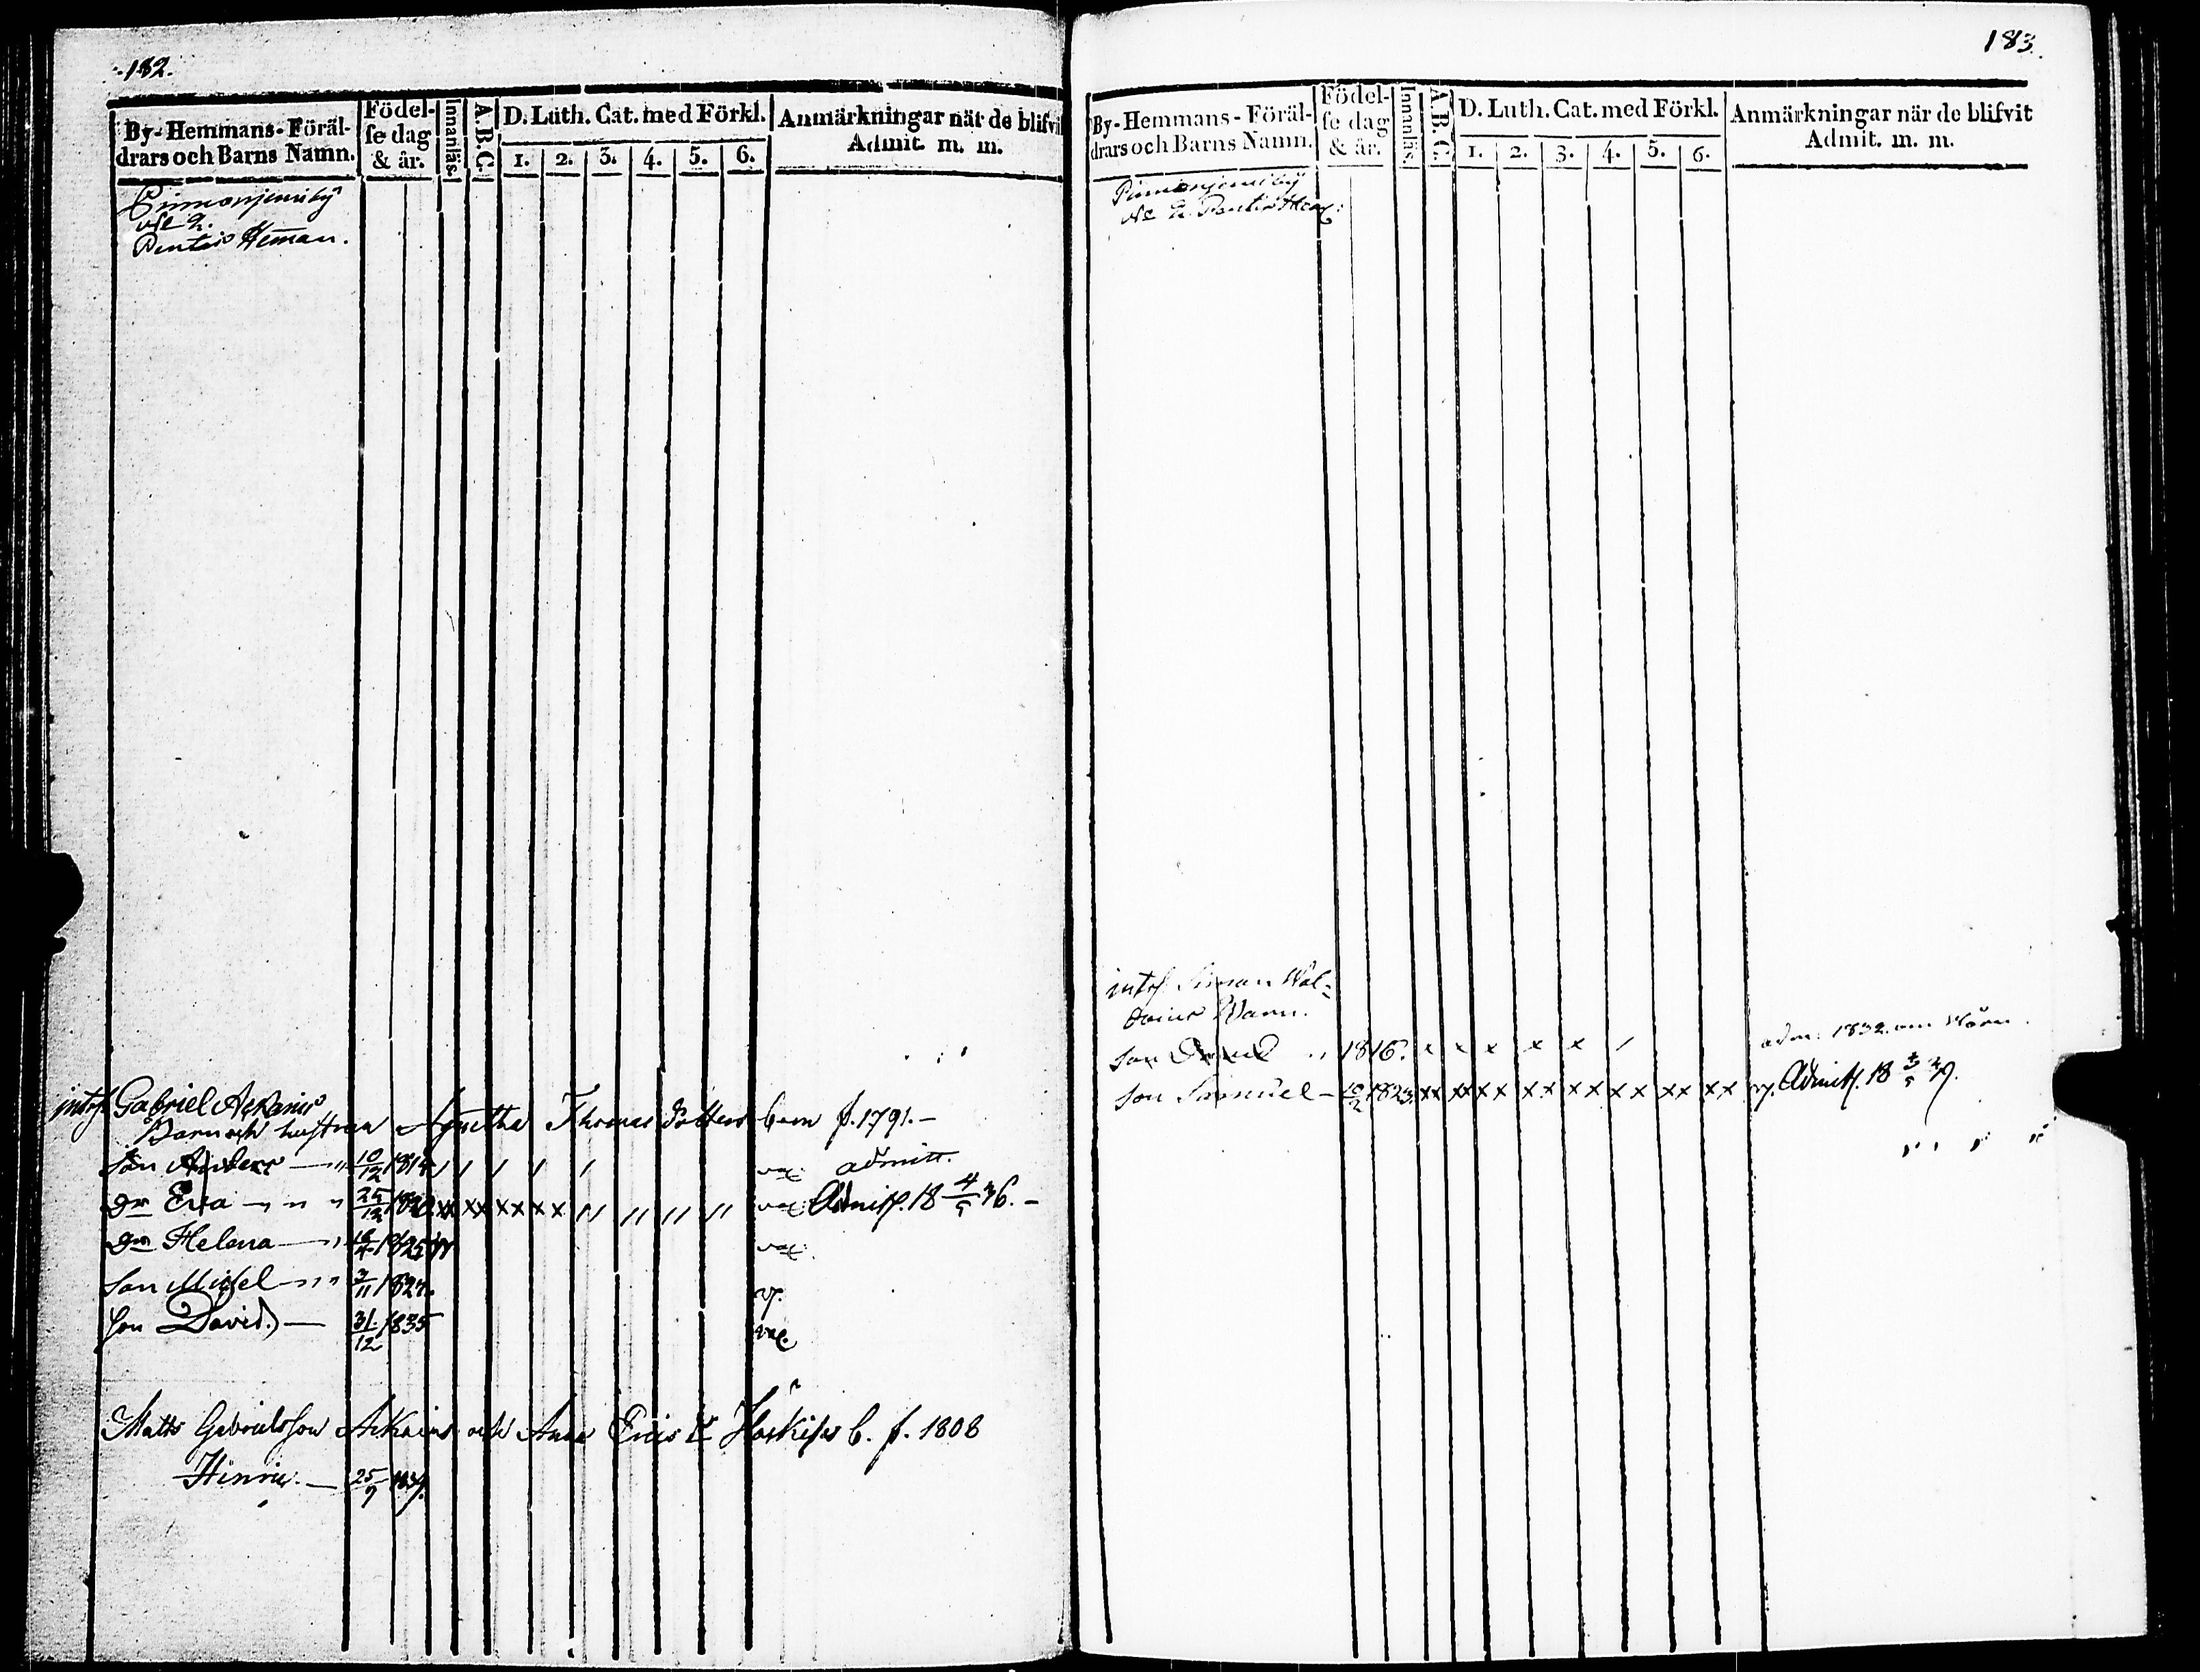 182.
By-Hemmans-Föräl-
drars och Barns Namn.
Födel-
se dag
& år.
Innanläs.
A.B.C.
D. Luth. Cat. med Förkl.
1. 2. 3. 4. 5. 6.
Anmärkningar når de blifvi
Admit. m. m.
No 2.
Pentas Heman.
inhs. Gabriel Askains
Barn och hustrun Agnetha Thomas dotters barn f. 1791.-
Son Anders 10/12 1814 vac. admitt.
Dr Eva 25/12 1820 xx xx xx xx vac. Admitt. 18 4/5 36.-
Dr Helena 1825 vac.
Son Michel 3/11 1827.
Son David. 31/12 1835 vac.
Matts Gabrielsson Askains och Anna Erics Dr b. f. 1808
Hinric. 25/9
183.
By-Hemmans-Föräl-
drars och Barns Namn.
Födel-
se dag
& år.
Innanläs.
A.B.C.
D. Luth. Cat. med Förkl.
1. 2. 3. 4. 5. 6.
Anmärkningar när de blifvit
Admit. m. m.
inhs. Simon Wal=
Barn.
Son 1816. x x x x x adm. 1832.
Son Samuel 10/2 1823. xx xx xx xx xx xx xx xx Admitt. 18